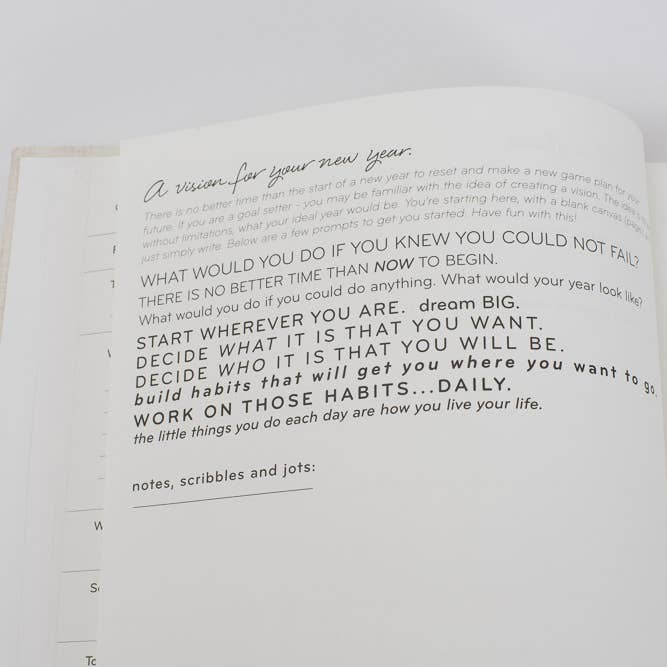 A vision for your new year.
There is no better time than the start of a new year to reset and make a new game plan for your
future. If you are a goal setter - you may be familiar with the idea of creating a vision. The idea is
without limitations, what your ideal year would be. You're starting here, with a blank canvas
just simply write. Below are a few prompts to get you started. Have fun with this!
WHAT WOULD YOU DO IF YOU KNEW YOU COULD NOT FAIL?
THERE IS NO BETTER TIME THAN NOW TO BEGIN.
What would you do if you could do anything. What would your year look like?
START WHEREVER YOU ARE. dream BIG.
DECIDE WHAT IT IS THAT YOU WANT.
DECIDE WHO IT IS THAT YOU WILL BE.
build habits that will get you where you want to go.
WORK ON THOSE HABITS...DAILY.
the little things you do each day are how you live your life.
notes, scribbles and jots: